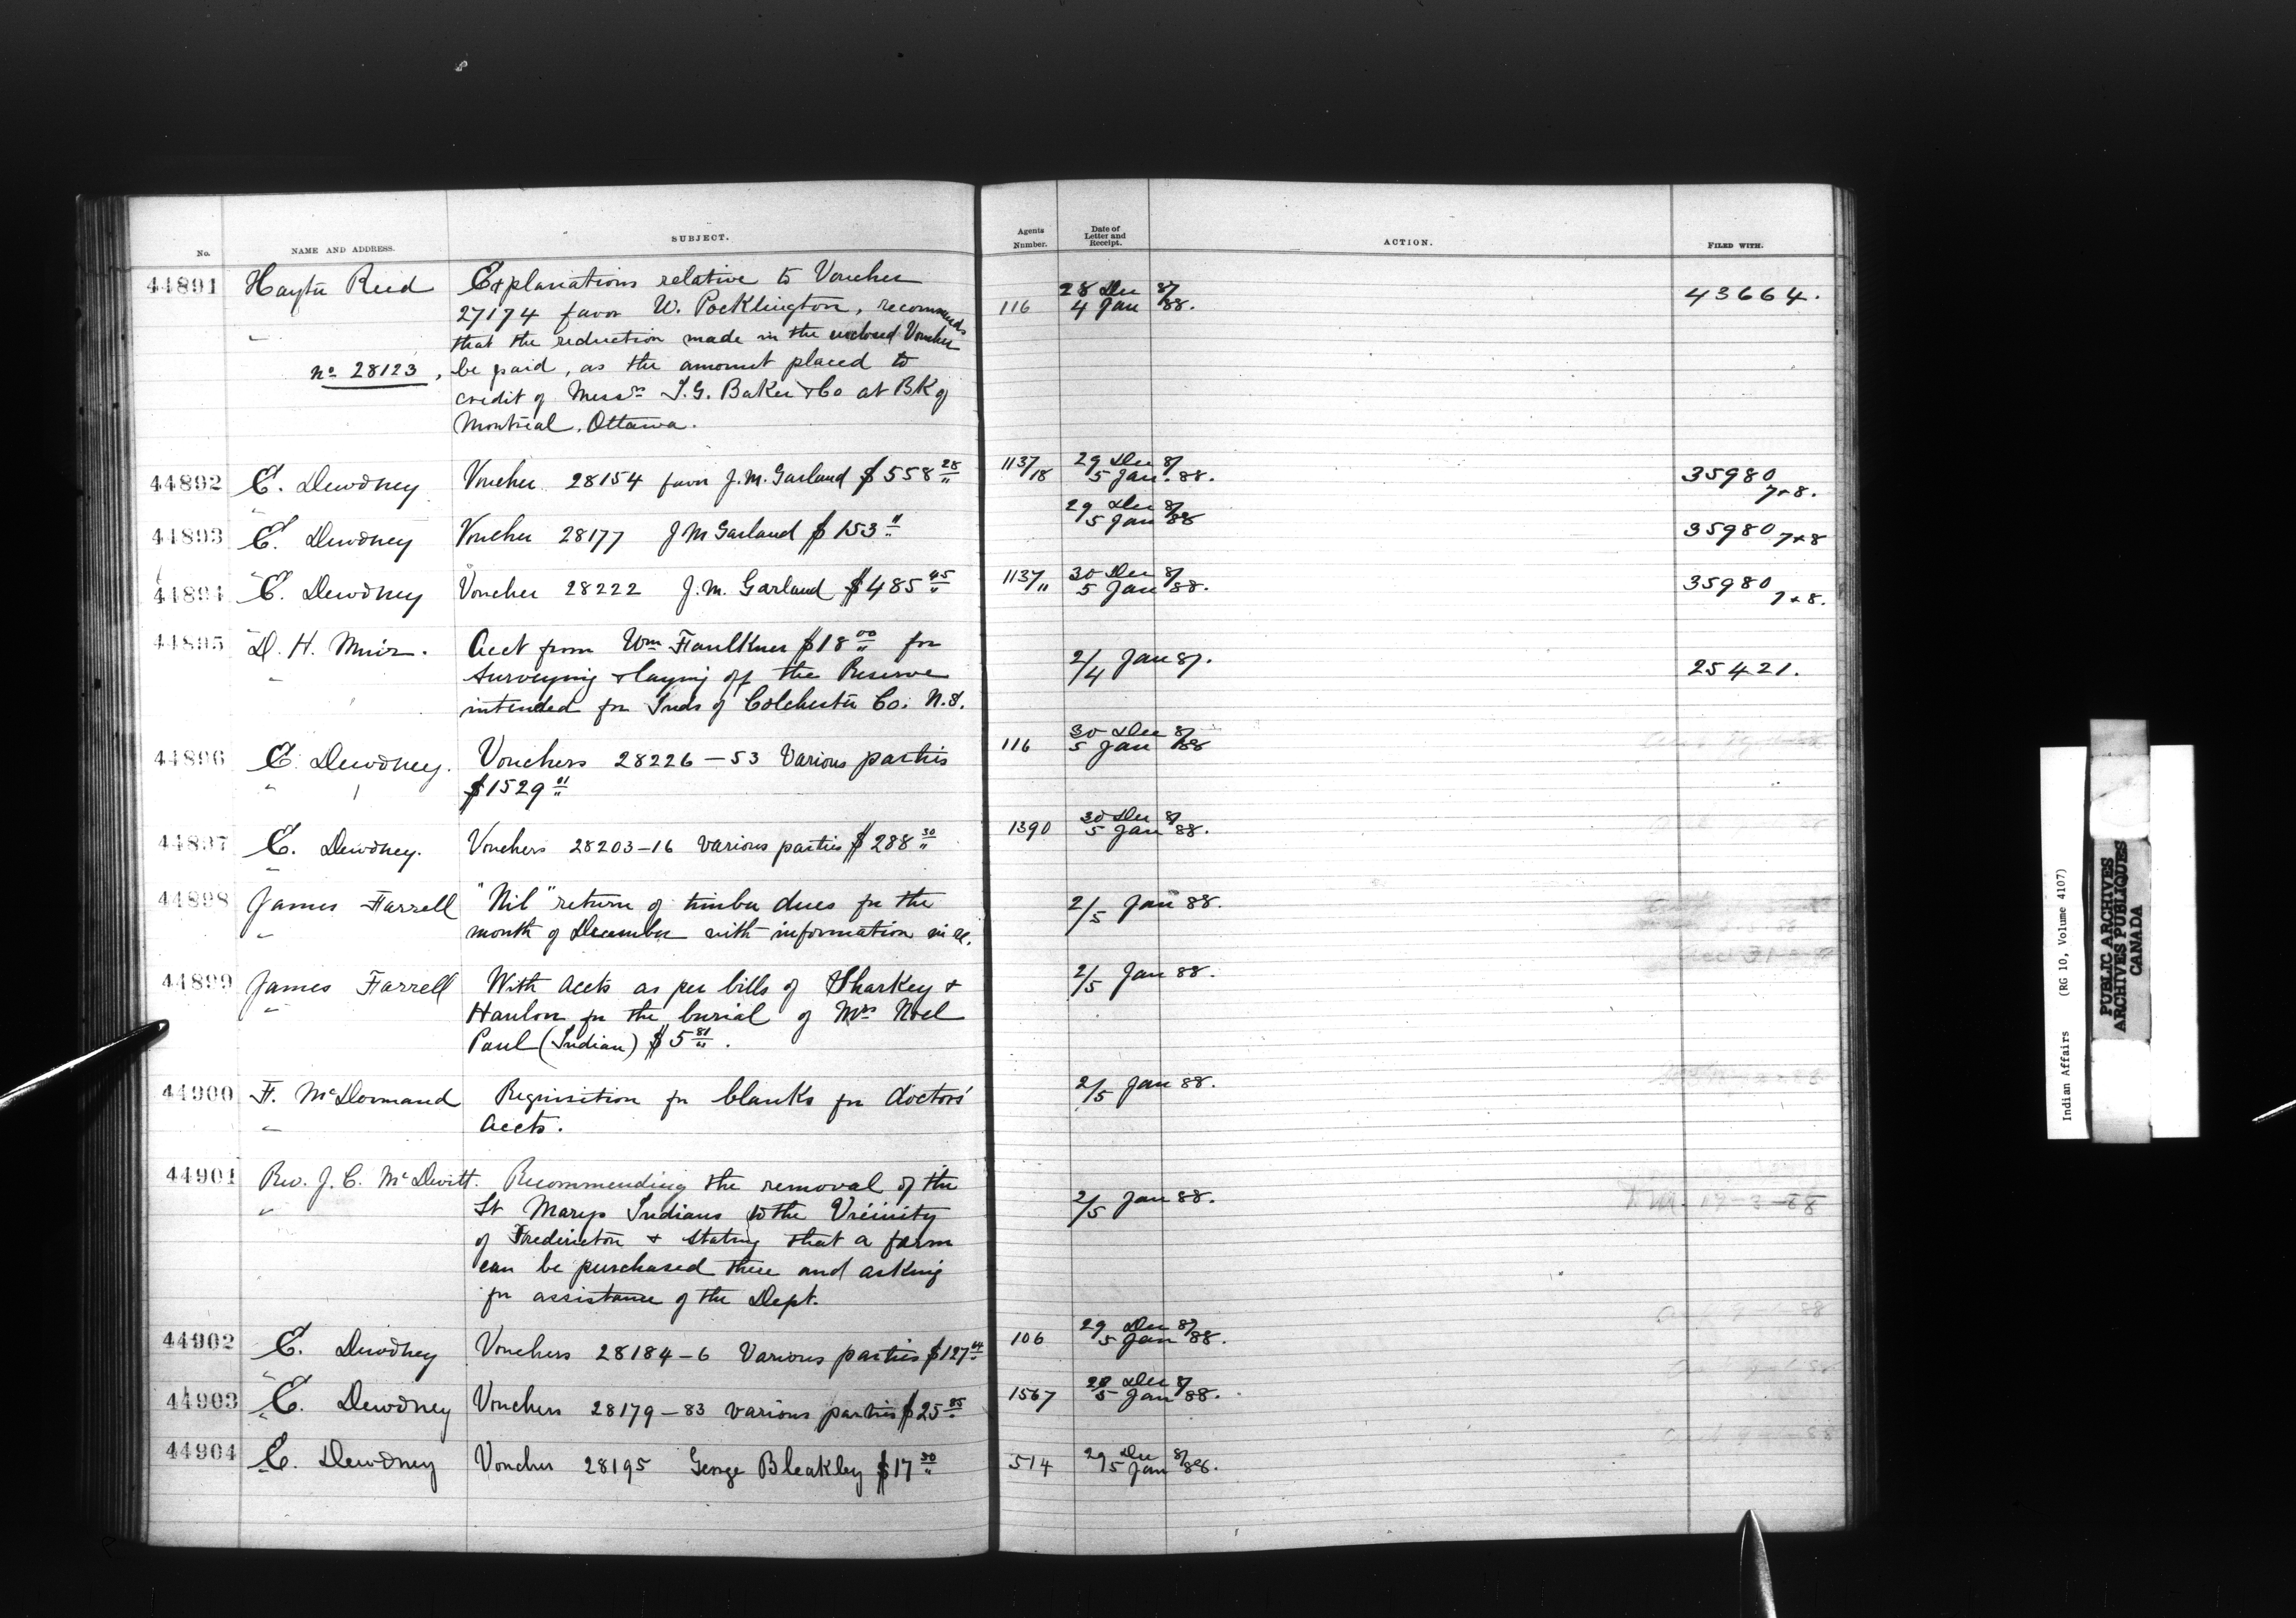 No. NAME AND ADDRESS. SUBJECT. Agents Number. Date of Letter and Receipt. ACTION. FILED WITH.
44891 Hayter Reed Explanations relative to Voucher 28 Dec 87
27174 favor W. Pocklington, recommends 116 4 Jan 88. 43664.
" that the reduction made in the enclosed Voucher
No 28123, be paid, as the amount placed to
credit of Messrs I.G. Baker & Co at BK of
Montreal, Ottawa.
44892 E. Dewdney Voucher 28154 favor J.M. Garland $558 28/" 1137/18 29 Dec 87 5 Jan. 88. 35980 7+8.
44893 E. Dewdney Voucher 28177 J M Garland $153 " 29 Dec 87 5 Jan 88 35980 7+8
44894 E. Dewdney Voucher 28222 J.M. Garland $485 45/" 1137/" 30 Dec 87 5 Jan 88. 35980 7+8.
44895 D. H. Muir. Acct from Wm Faulkner $18 00/" for 2/4 Jan 87.
" surveying & laying off the Reserve 25421.
intended for Inds of Colchester Co. N.S.
44896 E. Dewdney. Vouchers 28226-53 Various parties 116 30 Dec 87 5 Jan 88
" $1529 01/"
44897 E. Dewdney. Vouchers 28203-16 various parties $288 30/" 1390 30 Dec 87 5 Jan 88.
44898 James Farrell "Nil" return of timber dues for the 2/5 Jan 88.
" month of December with information in re.
44899 James Farrell With accts as per bills of Sharkey & 2/5 Jan 88.
" Hanlon for the burial of Mrs Noel
Paul (Indian) $5 81/".
44900 F. McDormand Requisition for blanks for doctors' 2/5 Jan 88.
" accts.
44901 Rev. J. C. McDevitt. Recommending the removal of the
" St Marys Indians to the Vicinity 2/5 Jan 88. 17-3-88
of Fredericton & stating that a farm
can be purchased there and asking
for assistance of the Dept.
44902 E. Dewdney Vouchers 28184-6 Various parties $127 44 106 29 Dec 87 5 Jan 88.
44903 E. Dewdney Vouchers 28179-83 various parties $25 85 1567 29 Dec 87 5 Jan 88.
44904 E. Dewdney Voucher 28195 George Bleakley $17 30/" 514 29 Dec 87 5 Jan 88.
Indian Affairs (RG 10, Volume 4107)
PUBLIC ARCHIVES
ARCHIVES PUBLIQUES
CANADA